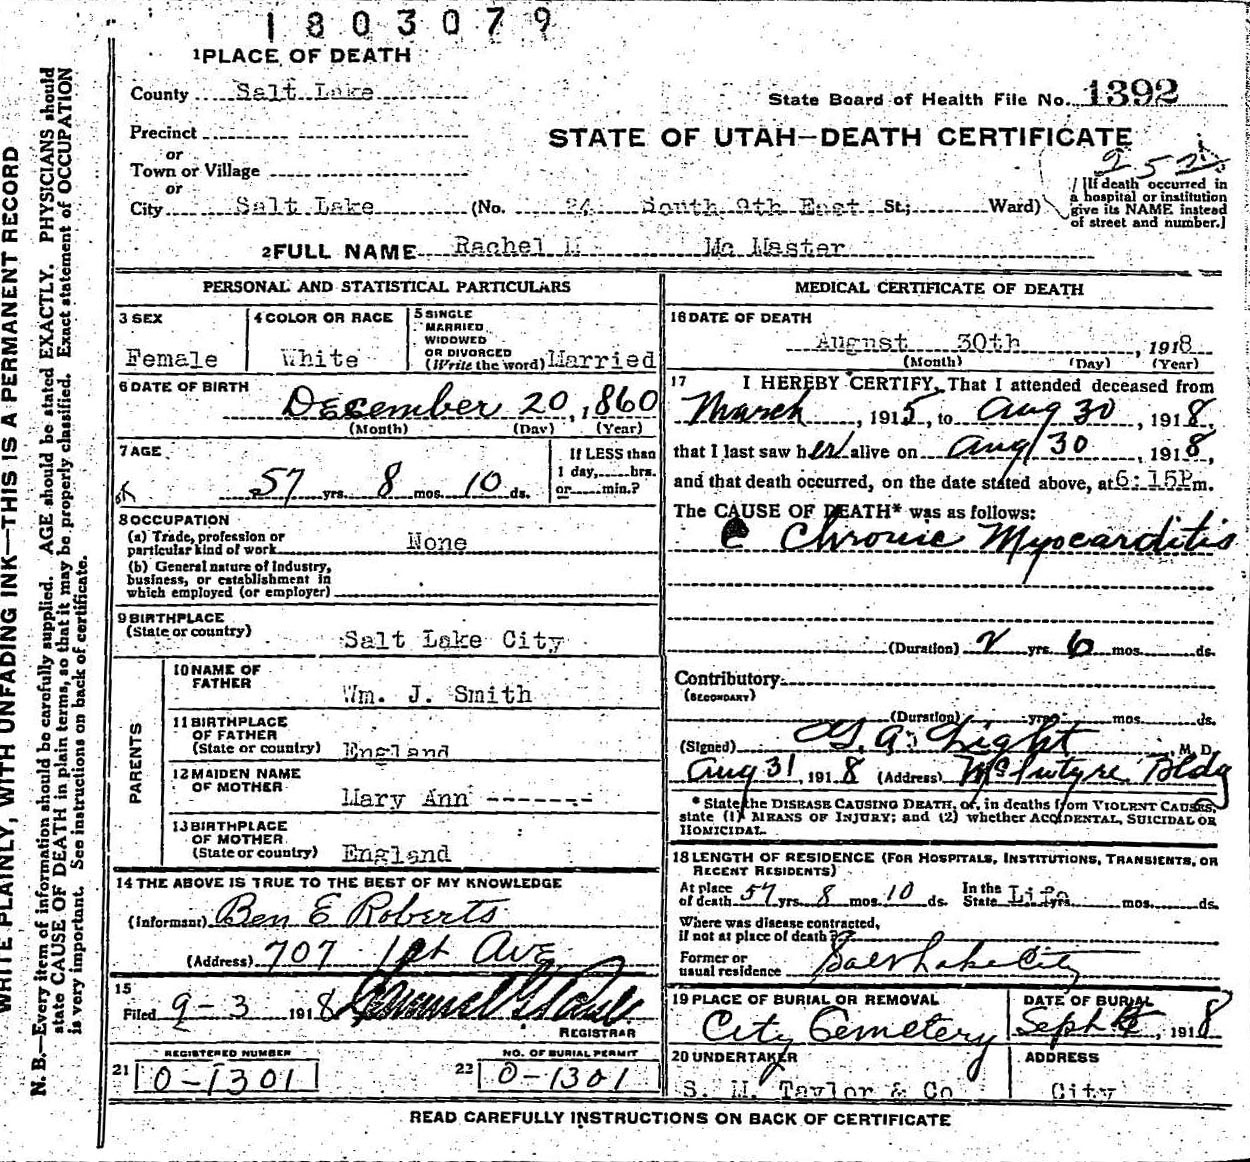 1803079
1 PLACE OF DEATH
County Salt Lake
State Board of Health File No. 1392
Precinct
STATE OF UTAH—DEATH CERTIFICATE
or
Town or Village
or
City Salt Lake (No. 24 South 9th East St; Ward)
[If death occurred in
a hospital or institution
give its NAME instead
of street and number.]
2 FULL NAME Rachel M Mc Master
PERSONAL AND STATISTICAL PARTICULARS
3 SEX
Female
4 COLOR OR RACE
White
5 SINGLE
MARRIED
WIDOWED
OR DIVORCED
(Write the word) Married
6 DATE OF BIRTH
December 20, 1860
(Month) (Day) (Year)
7 AGE
57 yrs. 8 mos. 10 ds.
If LESS than
1 day,......hrs.
or......min.?
8 OCCUPATION
(a) Trade, profession or
particular kind of work None
(b) General nature of Industry,
business, or establishment in
which employed (or employer)
9 BIRTHPLACE
(State or country) Salt Lake City
PARENTS
10 NAME OF
FATHER Wm. J. Smith
11 BIRTHPLACE
OF FATHER
(State or country) England
12 MAIDEN NAME
OF MOTHER Mary Ann -------
13 BIRTHPLACE
OF MOTHER
(State or country) England
14 THE ABOVE IS TRUE TO THE BEST OF MY KNOWLEDGE
(Informant) Ben E Roberts
(Address) 707 1st Ave
15
Filed 9-3 1918
REGISTRAR
REGISTERED NUMBER
21 0-1301
NO. OF BURIAL PERMIT
22 0-1301
MEDICAL CERTIFICATE OF DEATH
16 DATE OF DEATH
August 30th, 1918
(Month) (Day) (Year)
17 I HEREBY CERTIFY, That I attended deceased from
March, 1915, to Aug 30, 1918,
that I last saw her alive on Aug 30, 1918,
and that death occurred, on the date stated above, at 6:15P m.
The CAUSE OF DEATH* was as follows:
Chronic Myocarditis
(Duration) 2 yrs. 6 mos. ds.
Contributory
(SECONDARY)
(Duration) yrs. mos. ds.
(Signed) G. A. Light, M. D.
Aug 31, 1918 (Address) McIntyre Bldg
* State the DISEASE CAUSING DEATH, or, in deaths from VIOLENT CAUSES,
state (1) MEANS OF INJURY; and (2) whether ACCIDENTAL, SUICIDAL OR
HOMICIDAL.
18 LENGTH OF RESIDENCE (FOR HOSPITALS, INSTITUTIONS, TRANSIENTS, OR
RECENT RESIDENTS)
At place
of death 57 yrs. 8 mos. 10 ds.
In the
State Life yrs. mos. ds.
Where was disease contracted,
if not at place of death?
Former or
usual residence Salt Lake City
19 PLACE OF BURIAL OR REMOVAL
City Cemetery
DATE OF BURIAL
Sept, 1918
20 UNDERTAKER
S. M. Taylor & Co
ADDRESS
City
READ CAREFULLY INSTRUCTIONS ON BACK OF CERTIFICATE
WRITE PLAINLY, WITH UNFADING INK—THIS IS A PERMANENT RECORD
N. B.—Every item of information should be carefully supplied. AGE should be stated EXACTLY. PHYSICIANS should
state CAUSE OF DEATH in plain terms, so that it may be properly classified. Exact statement of OCCUPATION
is very important. See instructions on back of certificate.